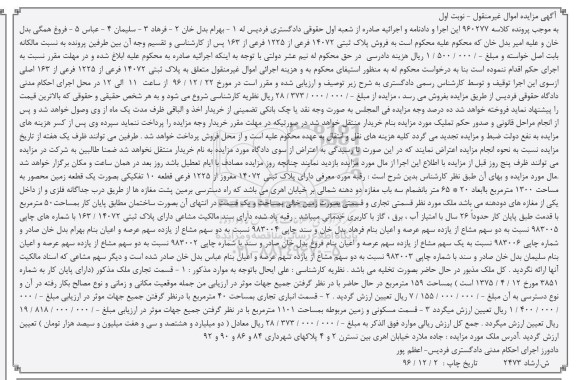 آگهی مزایده اموال غیرمنقول - نوبت اول
به موجب پرونده کلاسه ۹۶۰۲۷۷ این اجرا و دادنامه و اجرائیه صادره از شعبه اول حقوقی دادگستری فردیس له ۱ - بهرام بدل خان ۲ - فرهاد ۳ - سلیمان ۴ - عباس ۵ - فروغ همگی بدل
خان و علیه امیر بدل خان که محکوم علیه محکوم است به فروش پلاک ثبتی ۱۴۰۷۲ فرعی از ۱۲۲۵ فرعی از ۱۶۳ پس از کارشناسی و تقسیم وجه آن بین طرفین پرونده به نسبت مالکانه
بابت اصل خواسته و مبلغ ۱/۵۰۰/۰۰۰ ریال هزینه دادرسی در حق محکوم له نیم عشر دولتی با توجه به اینکه اجرائیه صادره به محکوم علیه ابلاغ شده و در مهلت مقرر نسبت به
اجرای حکم اقدام ننموده است بنا به درخواست محکوم له به منظور استیفای محکوم به و هزینه اجرائی اموال غیرمنقول متعلق به پلاک ثبتی ۱۴۰۷۲ فرعی از ۱۲۲۵ فرعی از ۱۶۳ اصلی
ازسوی این اجرا توقیف و توسط کارشناس رسمی دادگستری به شرح زیر توصیف و ارزیابی شده و مقرر است در مورخ ۲۲ / ۱۲ / ۹۶ از ساعت ۱۱ الی ۱۲ در محل اجرای احکام مدنی
دادگاه حقوقی فردیس از طریق مزایده بفروش می رسد ، مزایده از مبلغ ۲۸/۳۷۳/۰۰۰/۰۰۰ ریال نظریه کارشناسی شروع می شود و به هر شخص حقیقی و حقوقی که بالاترین قیمت
را پیشنهاد نماید فروخته خواهد شد ده درصد وجه مزایده فی المجلس به صورت وجه نقد یا چک بانکی تضمینی از خریدار اخذ و الباقی ظرف مدت یک ماه از وی وصول خواهد شد و پس
از انجام مراحل قانونی و صدور حکم تملیک مورد مزایده بنام خریدار منتقل خواهد شد در صورتیکه در مهلت مقرر خریدار وجه مزایده را پرداخت ننماید سپرده وی پس از کسر هزینه های
مزایده به نفع دولت ضبط و مزایده تجدید می گردد کلیه هزینه های نقل و انتقال به عهده محکوم علیه است و از محل فروش پرداخت خواهد شد . طرفین می توانند ظرف یک هفته از تاریخ
مزایده نسبت به نحوه انجام مزایده اعتراض نمایند که در این صورت تا رسیدگی به اعتراض از سوی دادگاه مورد مزایده به نام خریدار منتقل نخواهد شد ضمنا طالبین به شرکت در مزایده
می توانند ظرف پنج روز قبل از مزایده با اطلاع این اجرا از مال مورد مزایده بازدید نمایند چنانچه روز مزایده مصادف با ایام تعطیل باشد روز بعد در همان ساعت و مکان برگزار خواهد شد
مال مورد مزایده و بهای آن طبق نظر کارشناس بدین شرح است : رقبه مورد معرفی دارای پلاک ثبتی ۱۴۰۷۲ مفروز از ۱۲۲۵ فرعی قطعه ۱۰ تفکیکی بصورت یک قطعه زمین محصور به
مساحت ۱۳۰۰ مترمربع باابعاد ۲۰ * ۶۵ متر بانضمام سه باب مغازه دو دهنه شمالی بر خیابان اهری می باشد که راه دسترسی برمین پشت مغازه ها از طریق درب جداگانه فلزی و از داخل
یکی از مغازه های دودهنه می باشد ملک مورد نظر قسمتی تجاری و قسمتی بصورت زمین خالی بمساحت و یک قسمت در انتهای آن بصورت ساختمان مطابق پایان کار بمساحت ۵۰ مترمربع
با قدمت طبق پایان کار حدودا ۲۶ سال با امتیاز آب ، برق ، گاز با کاربری خدماتی میباشد . رقبه یاد شده دارای سند مالکیت مشاعی دارای پلاک ثبتی ۱۴۰۷۲ / ۱۶۳ با شماره های چاپی
۹۸۳۰۰۵ نسبت به دو سهم مشاع از یازده سهم عرصه و اعیان بنام فرهاد بدل خان و سند چاپی ۹۸۳۰۰۴ نسبت به دو سهم مشاع از یازده سهم عرصه و اعیان بنام بهرام بدل خان صادر و
شماره چاپی ۹۸۳۰۰۶ نسبت به یک سهم مشاع از یازده سهم عرصه و اعیان بنام فروغ بدل خان صادر و سند با شماره چاپی ۹۸۳۰۰۲ نسبت به دو سهم مشاع از یازده سهم عرصه و اعیان
بنام سلیمان بدل خان صادر و سند با شماره چاپی ۹۸۳۰۰۳ نسبت به دو سهم مشاع از یازده سهم عرصه و اعیان بنام عباس بدل خان صادر شده است و دیگر سهم مشاعی که اسناد مالکیت
آنها ارائه نگردید . کل ملک مذبور در حال حاضر بصورت تخلیه می باشد . نظریه کارشناسی : علی ایحال باتوجه به موارد مذکور : ۱ - قسمت تجاری ملک مذکور (دارای پایان کار به شماره
۳۸۵۱ مورخ ۱۲ / ۴ / ۱۳۷۵ است ) بمساحت ۱۵۹ مترمربع در حال حاضر با در نظر گرفتن جمیع جهات موثر در ارزیابی من جمله موقعیت مکانی و زمانی و نوع مصالح بکار رفته در آن و
نوع دسترسی به آن مبلغ ۷/۱۵۵/۰۰۰/۰۰۰ ریال تعیین ارزش گردید . ۲ - قسمت انباری تجاری بمساحت ۴۰ مترمربع با درنظر گرفتن جمیع جهات موثر در ارزیابی مبلغ
۱/۴۰۰/۰۰۰/۰۰۰ ریال تعیین ارزش میگردد ۳ - قسمت مسکونی و زمین مربوطه بمساحت ۱۱۰۱ مترمربع با در نظر گرفتن جمیع جهات موثر در ارزیابی مبلغ ۱۹/۸۱۸/۰۰۰/۰۰۰
ریال تعیین ارزش میگردد . جمع کل ارزش ریالی موارد فوق الذکر به مبلغ ۲۸/۳۷۳/۰۰۰/۰۰۰ ریال معادل ( دو میلیارد و هشتصد و سی و هفت میلیون و سیصد هزار تومان ) تعیین
ارزش گردید .آدرس ملک مورد مزایده : جاده ملارد خیابان اهری بین نسترن ۲ و ۴ پلاکهای شهرداری ۸۴ و ۸۶ و ۹۰ و ۹۲
دادورز اجرای احکام مدنی دادگستری فردیس- اعظم پور
ش.ارشاد ۲۴۷۳ تاریخ چاپ : ۲ / ۱۲ / ۹۶